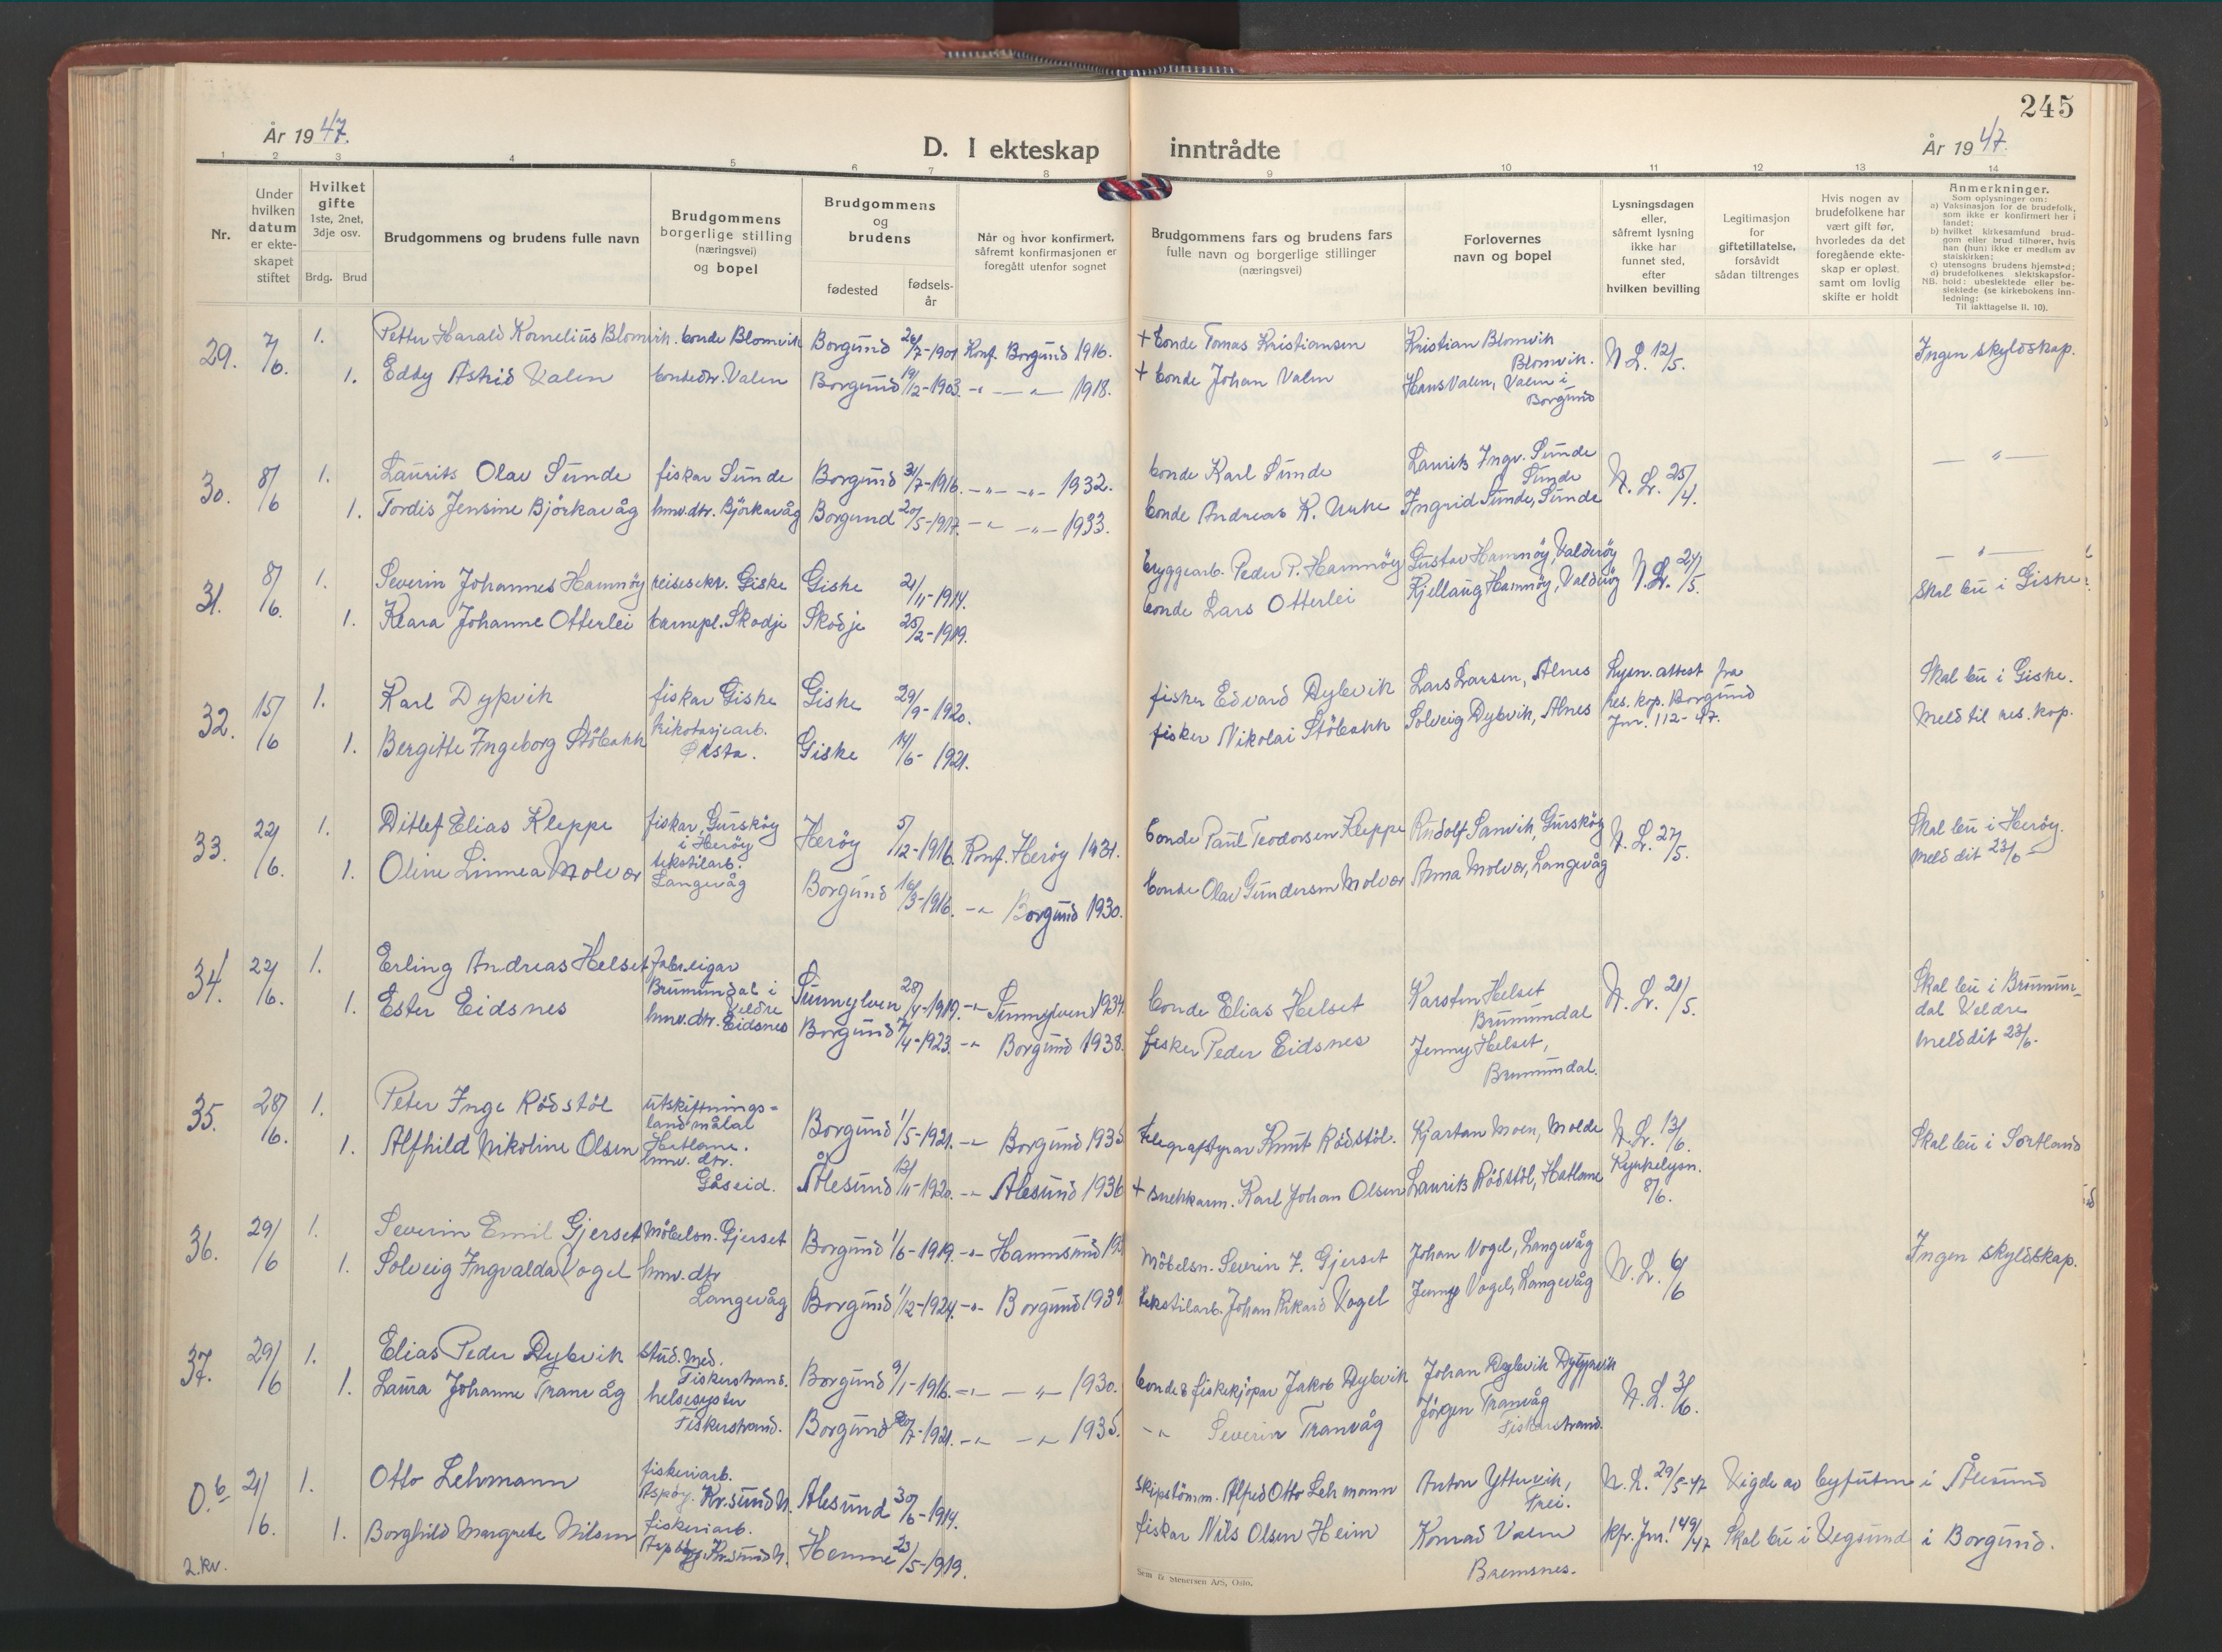 245
År 1947.
D. I ekteskap inntrådte
År 1947.
1 2 3 4 5 6 7 8 9 10 11 12 13 14
Nr.
Under hvilken datum er ekteskapet stiftet
Hvilket gifte 1ste, 2net, 3dje osv.
Brdg. Brud
Brudgommens og brudens fulle navn
Brudgommens borgerlige stilling (næringsvei) og bopel
Brudgommens og brudens
fødested
fødselsår
Når og hvor konfirmert, såfremt konfirmasjonen er foregått utenfor sognet
Brudgommens fars og brudens fars fulle navn og borgerlige stillinger (næringsvei)
Forlovernes navn og bopel
Lysningsdagen eller, såfremt lysning ikke har funnet sted, efter hvilken bevilling
Legitimasjon for giftetillatelse, forsåvidt sådan tiltrenges
Hvis nogen av brudefolkene har vært gift før, hvorledes da det foregående ekteskap er opløst. samt om lovlig skifte er holdt
Anmerkninger.
Som oplysninger om:
a) Vaksinasjon for de brudefolk, som ikke er konfirmert her i landet;
b) hvilket kirkesamfund brudgom eller brud tilhører, hvis han (hun) ikke er medlem av statskirken;
c) utensogns brudens hjemsted;
d) brudefolkenes slektskapsforhold: ubeslektede eller beslektede (se kirkebokens innledning:
NB.
Til iakttagelse II. 10).
29. 7/6. 1. Petter Harald Kornelius Blomvik. bonde Blomvik Borgund 26/7-1901 Konf. Borgund 1916. + bonde Tomas Kristiansen Kristian Blomvik Blomvik. N L. 12/5. Ingen skyldskap.
1. Eddy Astrid Valen bondedtr. Valen Borgund 19/12-1903. -"- -"- 1918. + bonde Johan Valen Hans Valen, Valen i Borgund
30. 8/6 1. Laurits Olav Sunde fiskar Sunde Borgund 31/7-1916. -"- -"- 1932. bonde Karl Sunde Laurits Ingv. Sunde Sunde N. L. 25/4. -"-
1. Tordis Jensine Björkavåg hmv.dtr. Björkavåg Borgund 20/5-1917. -"- -"- 1933. bonde Andreas K. Ingrid Sunde, Sunde
31. 8/6. 1. Severin Johannes Hamnöy reisesekr. Giske Giske 21/11-1914. bryggearb. Peder P. Hamnöy Gustav Hamnöy, Valderöy N. L. 24/5. -"-
1. Klara Johanne Otterlei barnepl. Skodje Skodje 25/2-1919. bonde Lars Otterlei Kjellaug Hamnöy, Valderöy Skal bu i Giske.
32. 15/6 1. Karl Dypvik fiskar Giske Giske 29/9-1920. fisker Edvard Dybvik Lars Larsen, Alnes Lysn. attest fra res. kap. Borgund Jnr. 112-47. Skal bu i Giske.
1. Bergitte Ingeborg Stöbakk trikotasjearb. Ørsta. Giske 14/6-1921. fisker Nikolai Stöbakk Solveig Dybvik, Alnes Meld til res. kap.
33. 22/6. 1. Ditlef Elias Kleppe fiskar, Gurskøy i Herøy Herøy 5/12-1916. Konf. Herøy 1931. bonde Paul Teodorsen Kleppe Rudolf Sanvik, Gurskøy N. L. 27/5. Skal bu i Herøy.
1. Oline Linnea Molvær tekstilarb. Langevåg Borgund 16/3-1916. -"- Borgund 1930. bonde Olav Gundersen Molvær Anna Molvær, Langevåg Meld dit 23/6
34. 22/6. 1. Erling Andreas Helset fabr.eigar Brumundal i Veldre Sunnylven 28/4-1919. -"- Sunnylven 1934. bonde Elias Helset Karsten Helset Brumundal N. L. 21/5. Skal bu i Brumundal Veldre
1. Ester Eidsnes hmv.dtr. Eidsnes Borgund 7/4-1923. -"- Borgund 1938. fisker Peder Eidsnes Jenny Helset, Brumundal. Meld dit 23/6.
35. 28/6. 1. Peter Inge Rödstöl utskiftnings-landmålal Hatlane. Borgund 1/5-1921. -"- Borgund 1935 telegrafstyrar Knut Rödstöl. Kjartan Moen, Molde N. L. 13/6. Skal bu i Sortland
1. Alfhild Nikoline Olsen hmv. dtr. Gåseid. Ålesund 13/11-1920. -"- Ålesund 1936 + snekkarm. Karl Johan Olsen Laurits Rödstöl, Hatlane Kyrkelysn. 8/6.
36. 29/6 1. Severin Emil Gjerset Möbelsn. Gjerset Borgund 1/6-1919. -"- Hamnsund Möbelsn. Severin J. Gjerset Johan Vogel, Langevåg N. L. 6/6 Ingen skyldskap.
1. Solveig Ingvalda Vogel hmv. dtr Langevåg Borgund 1/12-1924. -"- Borgund 1939 tekstilarb. Johan Rikard Vogel Jenny Vogel, Langevåg
37. 29/6 1. Elias Peder Dybvik stud. med. Fiskerstrand. Borgund 9/1-1916. -"- -"- 1930. bonde & fiskekjöpar Jakob Dybvik Johan Dybvik N. L. 3/6.
1. Laura Johanne Tranvåg helsesyster Fiskerstrand. Borgund 20/7-1921. -"- -"- 1935. -"- Severin Tranvåg Jörgen Tranvåg Fiskerstrand.
0.6 21/6. 1. Otto Lehmann fiskeriarb. Aspøy. Kr.sund N. Ålesund 30/6-1914. skipstömm. Alfred Otto Lehmann Anton Yttervik, Frei. N. L. 29/5-47 Vigde av byfuten i Ålesund
1. Borghild Margrete Nilsen fiskeriarb. Kr.sund N. Hemne 23/5-1919. fiskar Nils Olsen Heim Konrad Valen Bremsnes. kfr. Jnr. 149/47 Skal bu i Vegsund i Borgund.
2. kv.
Sem & Stenersen A/S, Oslo.